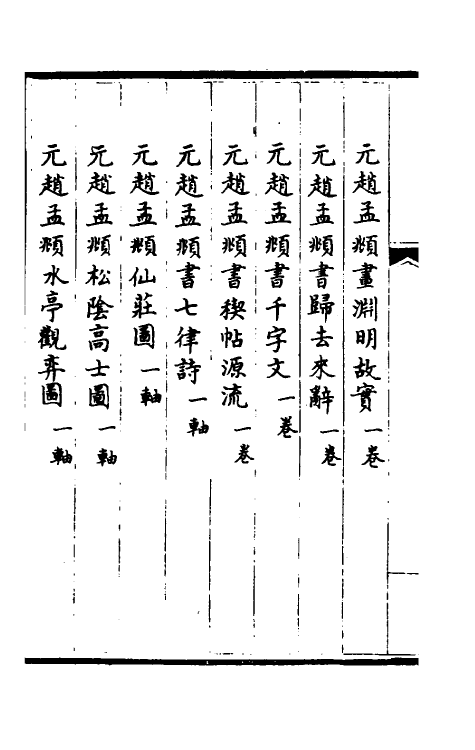 元趙孟頫畫淵明故實一卷
元趙孟頫書歸去來辭一卷
元趙孟頫書千字文一卷
元趙孟頫書稧帖源流一卷
元趙孟頫書七律詩一軸
元趙孟頫仙莊圖一軸
元趙孟頫松陰高士圖一軸
元趙孟頫水亭觀弈圖一軸